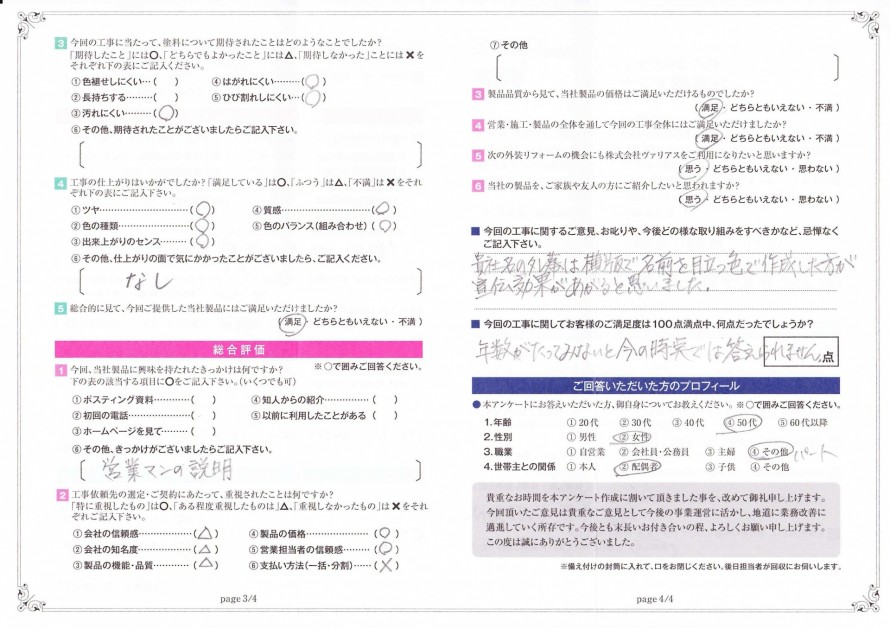 3 今回の工事に当たって、塗料について期待されたことはどのようなことでしたか?
「期待したこと」には○、「どちらでもよかったこと」には△、「期待しなかった」ことには×を
それぞれ下の表にご記入ください。
①色褪せしにくい…(　) ④はがれにくい………(○)
②長持ちする………(　) ⑤ひび割れしにくい…(○)
③汚れにくい………(○)
⑥その他、期待されたことがございましたらご記入下さい。
4 工事の仕上がりはいかがでしたか?「満足している」は○、「ふつう」は△、「不満」は×をそれ
ぞれ下の表にご記入下さい。
①ツヤ……………………(○) ④質感……………………(○)
②色の種類………………(○) ⑤色のバランス(組み合わせ)(○)
③出来上がりのセンス……(○)
⑥その他、仕上がりの面で気にかかったことがございましたら、ご記入ください。
なし
5 総合的に見て、今回ご提供した当社製品にはご満足いただけましたか?
(満足・どちらともいえない・不満)
総合評価
1 今回、当社製品に興味を持たれたきっかけは何ですか? ※○で囲みご回答ください。
下の表の該当する項目に○をご記入下さい。(いくつでも可)
①ポスティング資料…………(　) ④知人からの紹介…………(　)
②初回の電話………………(　) ⑤以前に利用したことがある(　)
③ホームページを見て………(　)
⑥その他、きっかけがございましたらご記入下さい。
営業マンの説明
2 工事依頼先の選定・ご契約にあたって、重視されたことは何ですか?
「特に重視したもの」は○、「ある程度重視したものは」△、「重視しなかったもの」は×をそれ
ぞれご記入下さい。
①会社の信頼感……………(△) ④製品の価格………………(○)
②会社の知名度……………(△) ⑤営業担当者の信頼感……(○)
③製品の機能・品質………(△) ⑥支払い方法(一括・分割)……(×)
page 3/4
⑦その他
3 製品品質から見て、当社製品の価格はご満足いただけるものでしたか?
(満足・どちらともいえない・不満)
4 営業・施工・製品の全体を通して今回の工事全体にはご満足いただけましたか?
(満足・どちらともいえない・不満)
5 次の外装リフォームの機会にも株式会社ヴァリアスをご利用になりたいと思いますか?
(思う・どちらともいえない・思わない)
6 当社の製品を、ご家族や友人の方にご紹介したいと思われますか?
(思う・どちらともいえない・思わない)
■ 今回の工事に関するご意見、お叱りや、今後どの様な取り組みをすべきかなど、忌憚なく
ご記入下さい。
貴社名の垂れ幕は横版で名前を目立つ色で作成した方が
宣伝効果があがると思いました。
■ 今回の工事に関してお客様のご満足度は100点満点中、何点だったでしょうか?
年数がたってみないと今の時点では答えられません。点
ご回答いただいた方のプロフィール
●本アンケートにお答えいただいた方、御自身についてお教えください。※○で囲みご回答ください。
1.年齢 ①20代 ②30代 ③40代 ④50代 ⑤60代以降
2.性別 ①男性 ②女性
3.職業 ①自営業 ②会社員・公務員 ③主婦 ④その他 パート
4.世帯主との関係 ①本人 ②配偶者 ③子供 ④その他
貴重なお時間を本アンケート作成に割いて頂きました事を、改めて御礼申し上げます。
今回頂いたご意見は貴重なご意見として今後の事業運営に活かし、地道に業務改善に
邁進していく所存です。今後とも末長いお付き合いの程、よろしくお願い申し上げます。
この度は誠にありがとうございました。
※備え付けの封筒に入れて、口をお閉じください。後日担当者が回収にお伺いします。
page 4/4